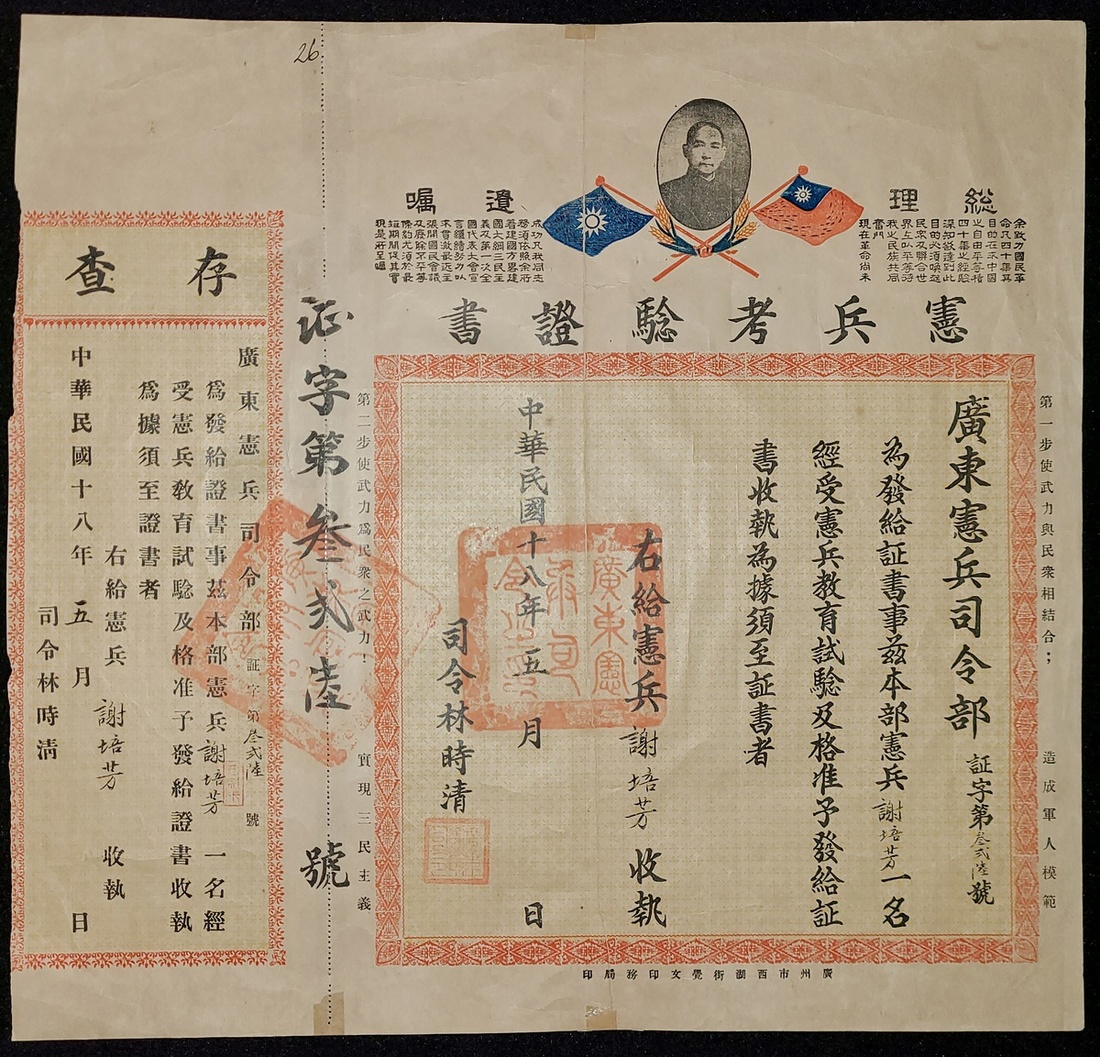 26
総理遺囑
余致力國民革
命凡四十年其
目的在求中國
之自由平等積
四十年之經驗
深知欲達到此
目的必須喚起
民衆及聯合世
界上以平等待
我之民族共同
奮鬥
現在革命尚未
成功凡我同志
務須依照余所
著建國方畧建
國大綱三民主
義及第一次全
國代表大會宣
言繼續努力以
求貫澈最近主
張開國民會議
及廢除不平等
條約尤須於最
短期間促其實
現是所至囑
憲兵考騐證書
第一步使武力與民衆相結合；造成軍人模範
廣東憲兵司令部 証字第叄弍陸號
為發給証書事茲本部憲兵謝培芳一名
經受憲兵教育試騐及格准予發給証
書收執為據須至証書者
右給憲兵謝培芳收執
中華民國十八年五月 日
司令林時清
第二步使武力爲民衆之武力！實現三民主義
廣州市西湖街覺文印務局印
証字第叄弍陸號
存查
廣東憲兵司令部 証字第叄弍陸號
爲發給證書事茲本部憲兵謝培芳一名經
受憲兵教育試騐及格准予發給證書收執
爲據須至證書者
右給憲兵謝培芳收執
中華民國十八年五月 日
司令林時清